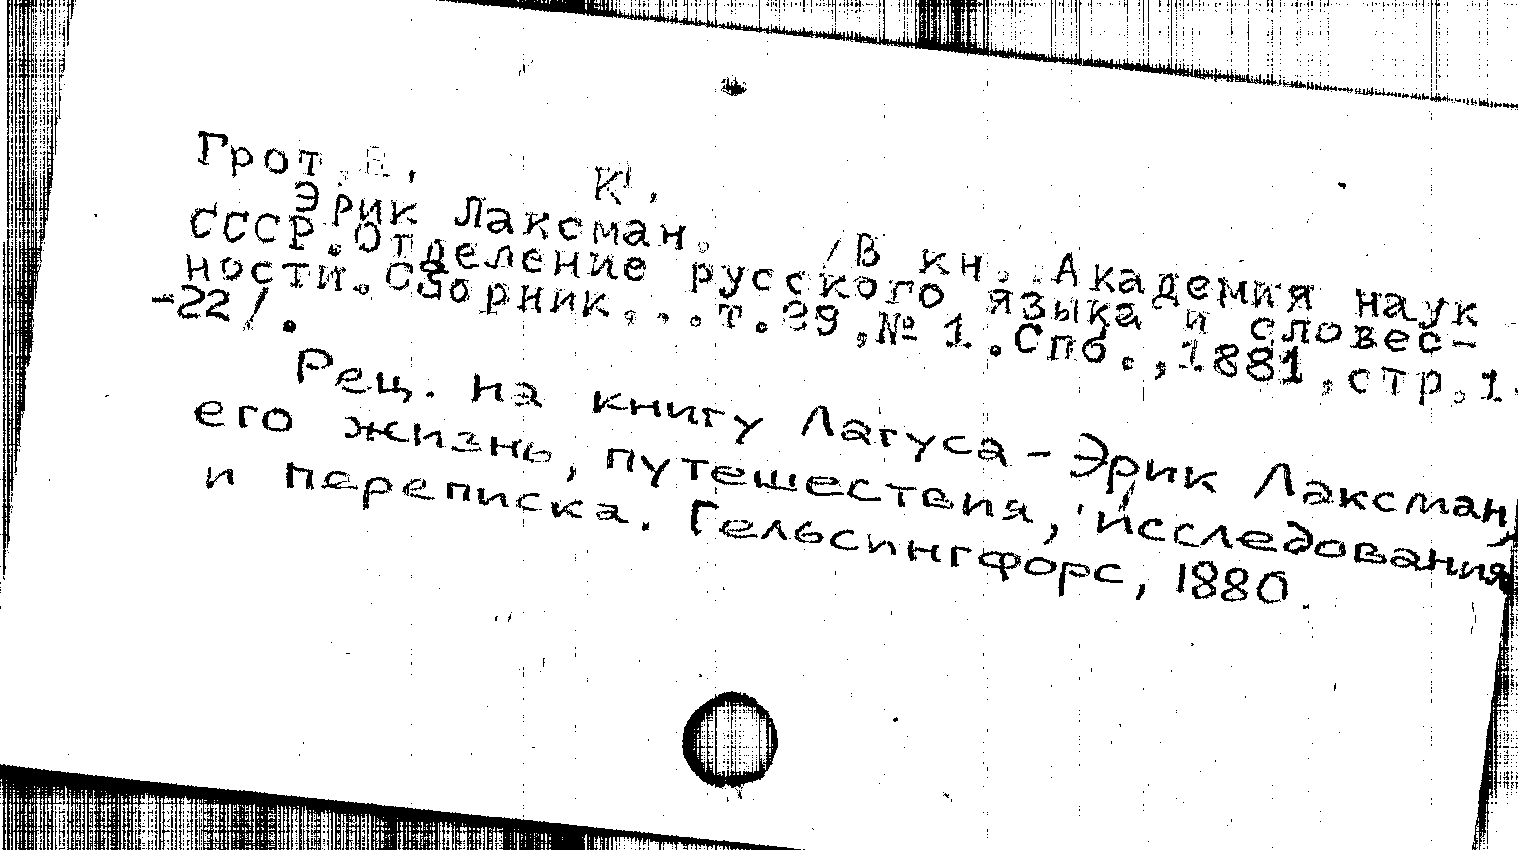 Грот,Я. К.
Эрик Лаксман. /В кн. Академия наук
СССР.Отделение русского языка и словес-
ности.Сборник...т.29,№ 1.Спб.,1881,стр,1-
-22/.
Рец. на книгу Лагуса - Эрик Лаксман,
его жизнь, путешествия, исследования
и переписка. Гельсингфорс, 1880.